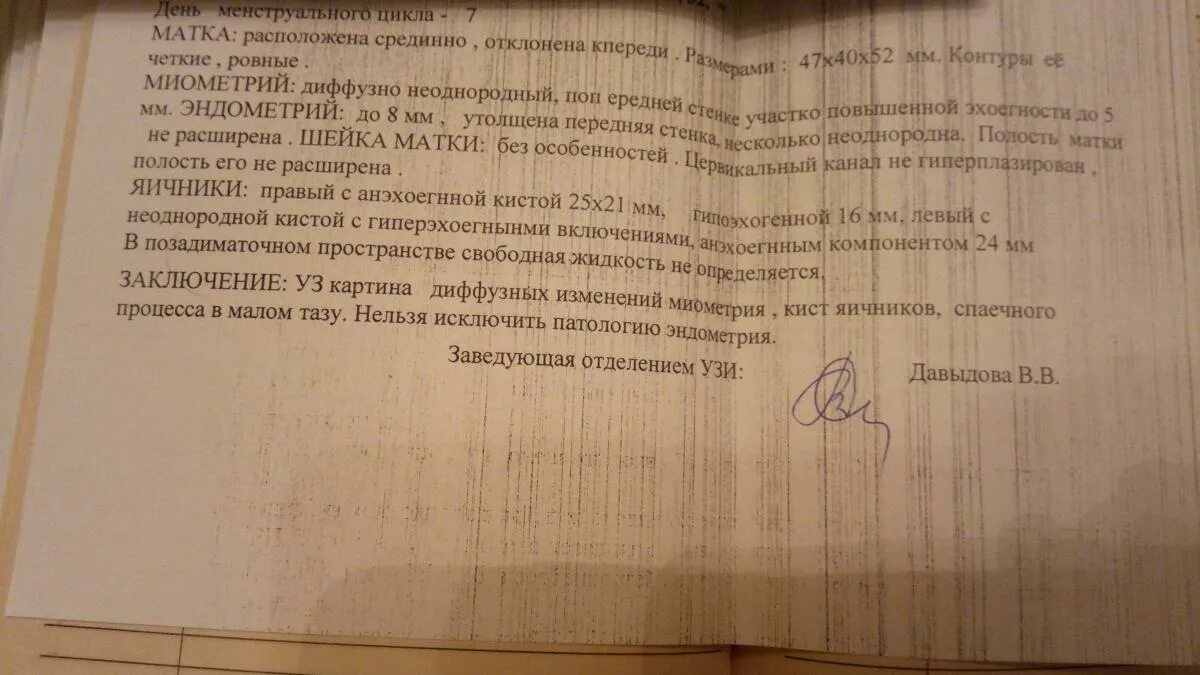 День менструального цикла - 7
МАТКА: расположена срединно , отклонена кпереди . Размерами : 47х40х52 мм. Контуры её
четкие , ровные .
МИОМЕТРИЙ: диффузно неоднородный, поп ередней стенке участко повышенной эхоегности до 5
мм. ЭНДОМЕТРИЙ: до 8 мм , утолщена передняя стенка, несколько неоднородна. Полость матки
не расширена . ШЕЙКА МАТКИ: без особенностей . Цервикальный канал не гиперплазирован ,
полость его не расширена .
ЯИЧНИКИ: правый с анэхоегнной кистой 25х21 мм, гипоэхогенной 16 мм, левый с
неоднородной кистой с гиперэхоегнынми включениями, анэхоегнным компонентом 24 мм
В позадиматочном пространстве свободная жидкость не определяется.
ЗАКЛЮЧЕНИЕ: УЗ картина диффузных изменений миометрия , кист яичников, спаечного
процесса в малом тазу. Нельзя исключить патологию эндометрия.
Заведующая отделением УЗИ: Давыдова В.В.